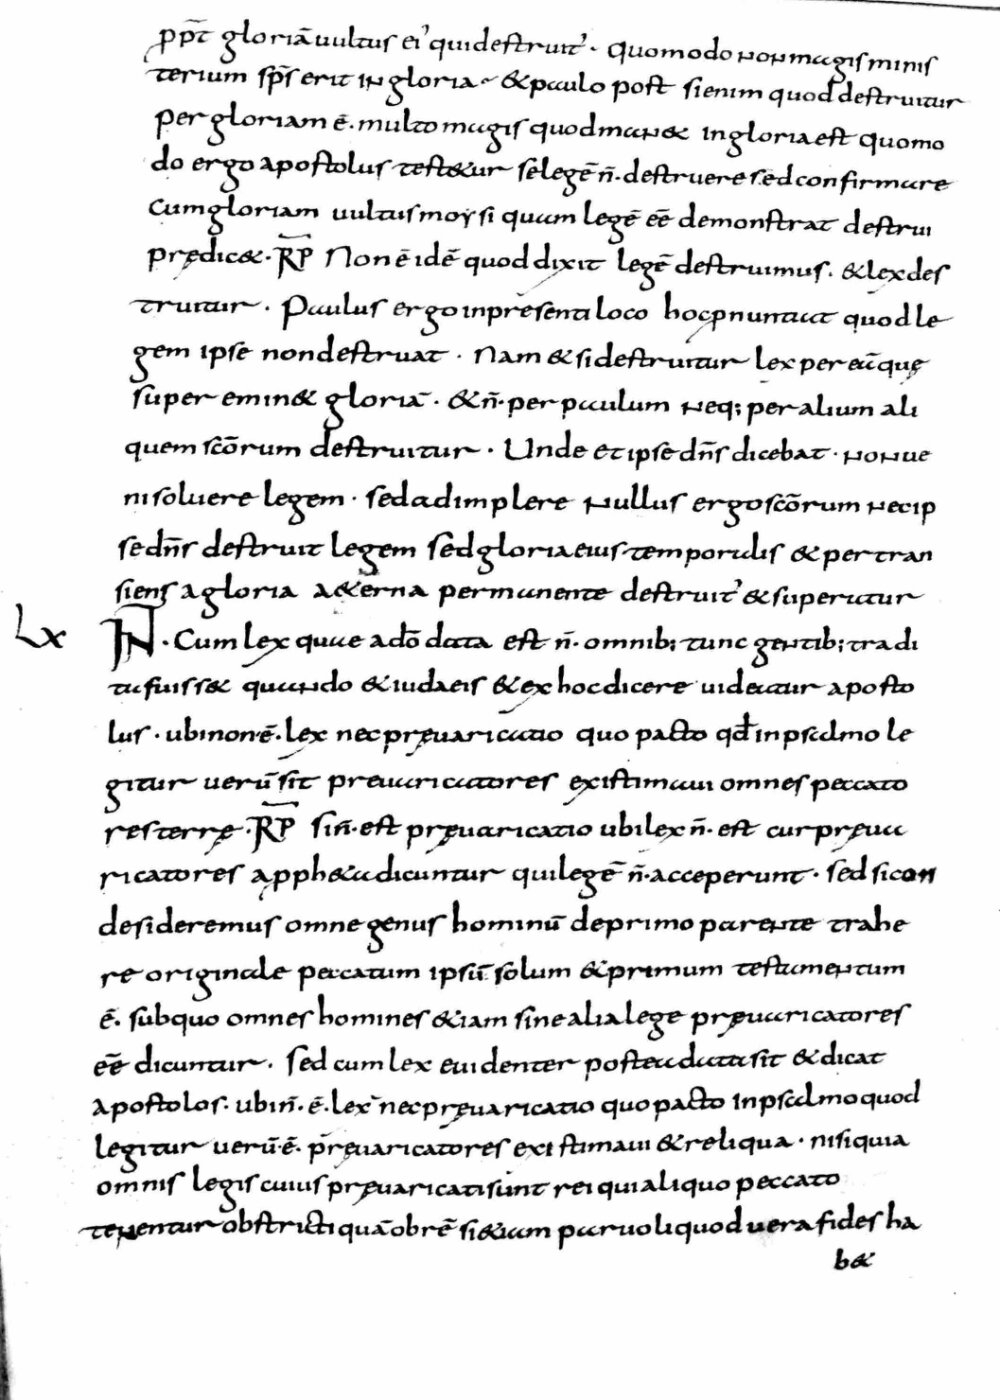 ppt̄ gloriā uultus ei' qui destruit'. Quomodo non magis minis
terium sp̄s erit in gloria & paulo post si enim quod destruitur
per gloriam ē. multo magis quod man& in gloria est quomo
do ergo apostolus test&ur se legē n̄. destruere sed confirmare
cum gloriam uultus moysi quam legē eē demonstrat destrui
prędic&. R̄P Non ē idē quod dixit legē destruimus. & lex des
truitur. Paulus ergo in presenti loco hoc pnuntiat quod le
gem ipse non destruat. Nam & si destruitur lex per eū quę
super emin& gloriā. & n̄. per paulum neq; per alium ali
quem scōrum destruitur. Unde et ipse dn̄s dicebat. non ue
ni soluere legem. sed adimplere nullus ergo scōrum nec ip
se dn̄s destruit legem sed gloria eius temporalis & per tran
siens a gloria a&erna permanente destruit' & superatur
Lx IN. Cum lex quae a dō data est n̄. omnib; tunc gentib; tradi
ta fuiss& quando & iudaeis & ex hoc dicere uideatur aposto
lus. ubi non. ē. lex nec pręuaricatio quo pacto qđ in psalmo le
gitur uerū sit preuaricatores existimaui omnes peccato
res terrę. R̄P si n̄. est pręuaricatio ubi lex n̄. est cur pręua
ricatores a pph&a dicuntur qui legē n̄. acceperunt. sed si con
desideremus omne genus hominū de primo parente trahe
re originale peccatum ipsū solum & primum testamentum
ē. sub quo omnes homines &iam sine alia lege pręuaricatores
eē dicuntur. sed cum lex euidenter postea data sit & dicat
apostolos. ubi n̄. ē. lex nec pręuaricatio quo pacto in psalmo quod
legitur uerū. ē. pręuaricatores existimaui & reliqua. nisi quia
omnis legis cuius pręuaricati sunt rei qui aliquo peccato
tenentur obstricti quā ob rē si &iam paruoli quod uera fides ha
b&